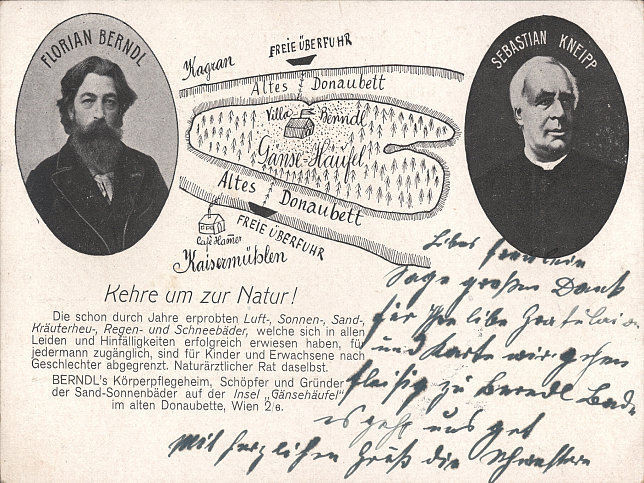 FLORIAN BERNDL
SEBASTIAN KNEIPP
FREIE ÜBERFUHR
Kagran
Altes Donaubett
Villa Berndl
Gänse-Häufel
Altes Donaubett
FREIE ÜBERFUHR
Café Hamer
Kaisermühlen
Kehre um zur Natur!
Die schon durch Jahre erprobten Luft-, Sonnen-, Sand-,
Kräuterheu-, Regen- und Schneebäder, welche sich in allen
Leiden und Hinfälligkeiten erfolgreich erwiesen haben, für
jedermann zugänglich, sind für Kinder und Erwachsene nach
Geschlechter abgegrenzt. Naturärztlicher Rat daselbst.
BERNDL's Körperpflegeheim, Schöpfer und Gründer
der Sand-Sonnenbäder auf der Insel „Gänsehäufel"
im alten Donaubette, Wien 2/6.
Libes Freulein
Sage großen Dank
für Ihre libe
und Karte wir gehen
fleisig zu Berndl Bad
es geht uns gut
Mit herzlichen Gruß die Schwestern